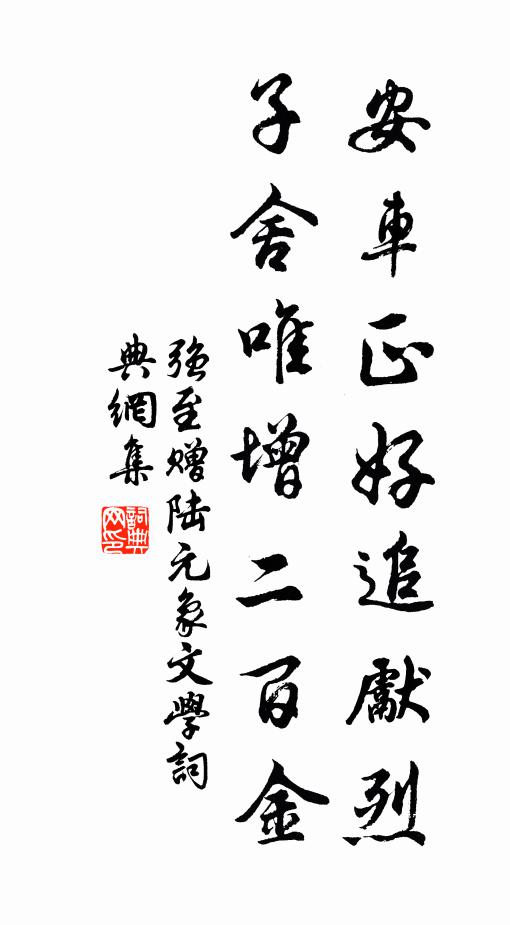 安車正好追獻烈
子舍唯增二百金
强至赠陆元象文學詞
典網集
詞典
网印